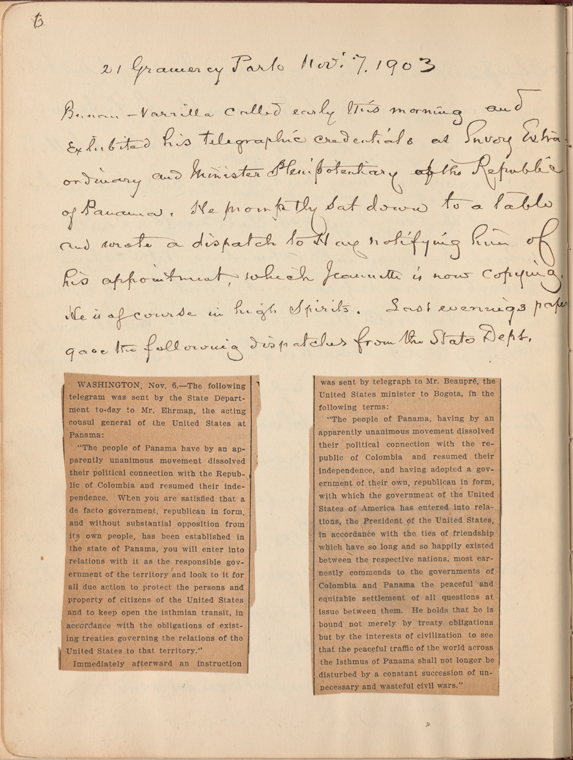 6
21 Gramercy Park Nov. 7. 1903
Bunau-Varrilla called early this morning and
exhibited his telegraphic credentials as Envoy Extra-
ordinary and Minister Plenipotentiary of the Republic
of Panama. He promptly sat down to a table
and wrote a dispatch to Hay notifying him of
his appointment, which Jeannette is now copying.
He is of course in high spirits. Last evenings paper
gave the following dispatches from the State Dept.
WASHINGTON, Nov. 6.—The following
telegram was sent by the State Depart-
ment to-day to Mr. Ehrman, the acting
consul general of the United States at
Panama:
"The people of Panama have by an ap-
parently unanimous movement dissolved
their political connection with the Repub-
lic of Colombia and resumed their inde-
pendence. When you are satisfied that a
de facto government, republican in form,
and without substantial opposition from
its own people, has been established in
the state of Panama, you will enter into
relations with it as the responsible gov-
ernment of the territory and look to it for
all due action to protect the persons and
property of citizens of the United States
and to keep open the isthmian transit, in
accordance with the obligations of exist-
ing treaties governing the relations of the
United States to that territory."
Immediately afterward an instruction
was sent by telegraph to Mr. Beaupré, the
United States minister to Bogota, in the
following terms:
"The people of Panama, having by an
apparently unanimous movement dissolved
their political connection with the re-
public of Colombia and resumed their
independence, and having adopted a gov-
ernment of their own, republican in form,
with which the government of the United
States of America has entered into rela-
tions, the President of the United States,
in accordance with the ties of friendship
which have so long and so happily existed
between the respective nations, most ear-
nestly commends to the governments of
Colombia and Panama the peaceful and
equitable settlement of all questions at
issue between them. He holds that he is
bound not merely by treaty obligations
but by the interests of civilization to see
that the peaceful traffic of the world across
the Isthmus of Panama shall not longer be
disturbed by a constant succession of un-
necessary and wasteful civil wars."